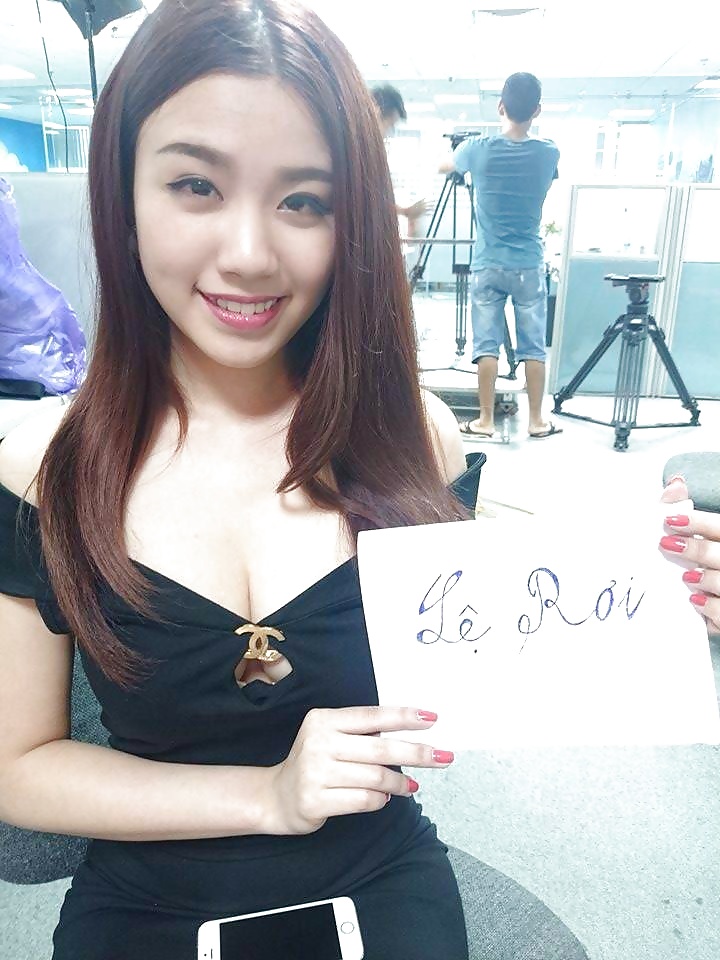 Lệ Rơi